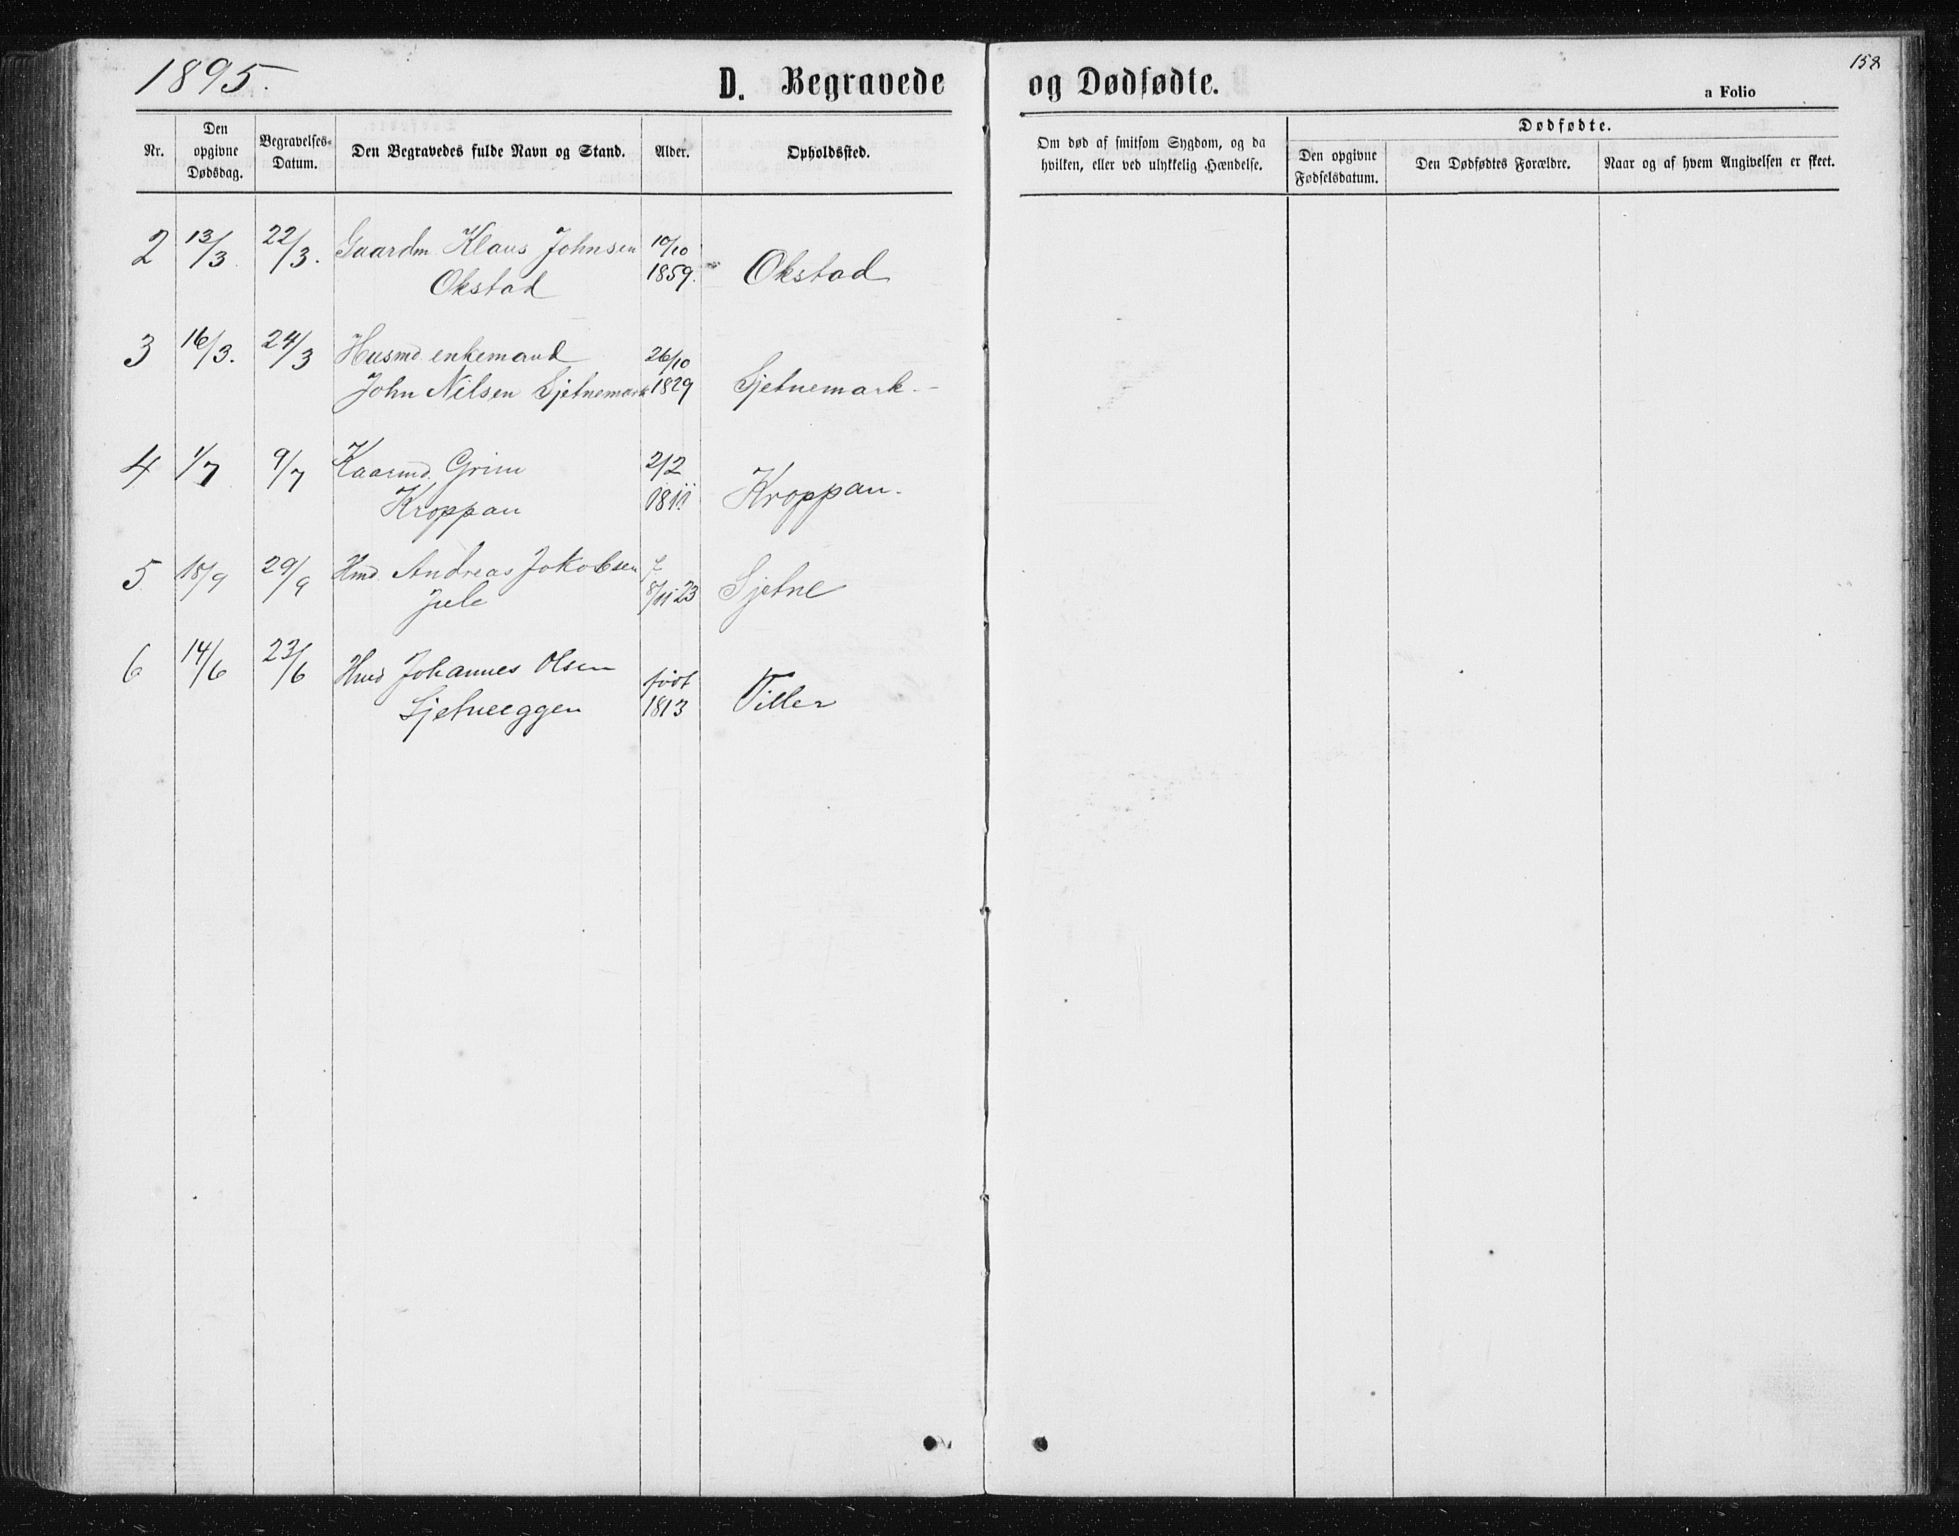 1895.
D. Begravede og Dødfødte.
a Folio
158
Nr.
Den opgivne Dødsdag.
Begravelses-Datum.
Den Begravedes fulde Navn og Stand.
Alder.
Opholdssted.
Om død af smitsom Sygdom, og da hvilken, eller ved ulykkelig Hændelse.
Dødfødte.
Den opgivne Fødselsdatum.
Den Dødfødtes Forældre.
Naar og af hvem Angivelsen er skeet.
2 13/3 22/3. Gaardm. Klaus Johnsen 10/10
Okstad 1859. Okstad
3 16/3. 24/3 Husmd. enkemand 26/10
John Nilsen Sjetnemark 1829 Sjetnemark.-
4 1/7 9/7 Kaarmd. Grim 2/2
Kroppan 1811 Kroppan.
5 18/9 29/9 Hmd. Andreas Jakobsen f.
8/11 23 Sjetne
6 14/6 23/6 Hmd Johannes Olsen født
Sjetneeggen 1813 Tiller